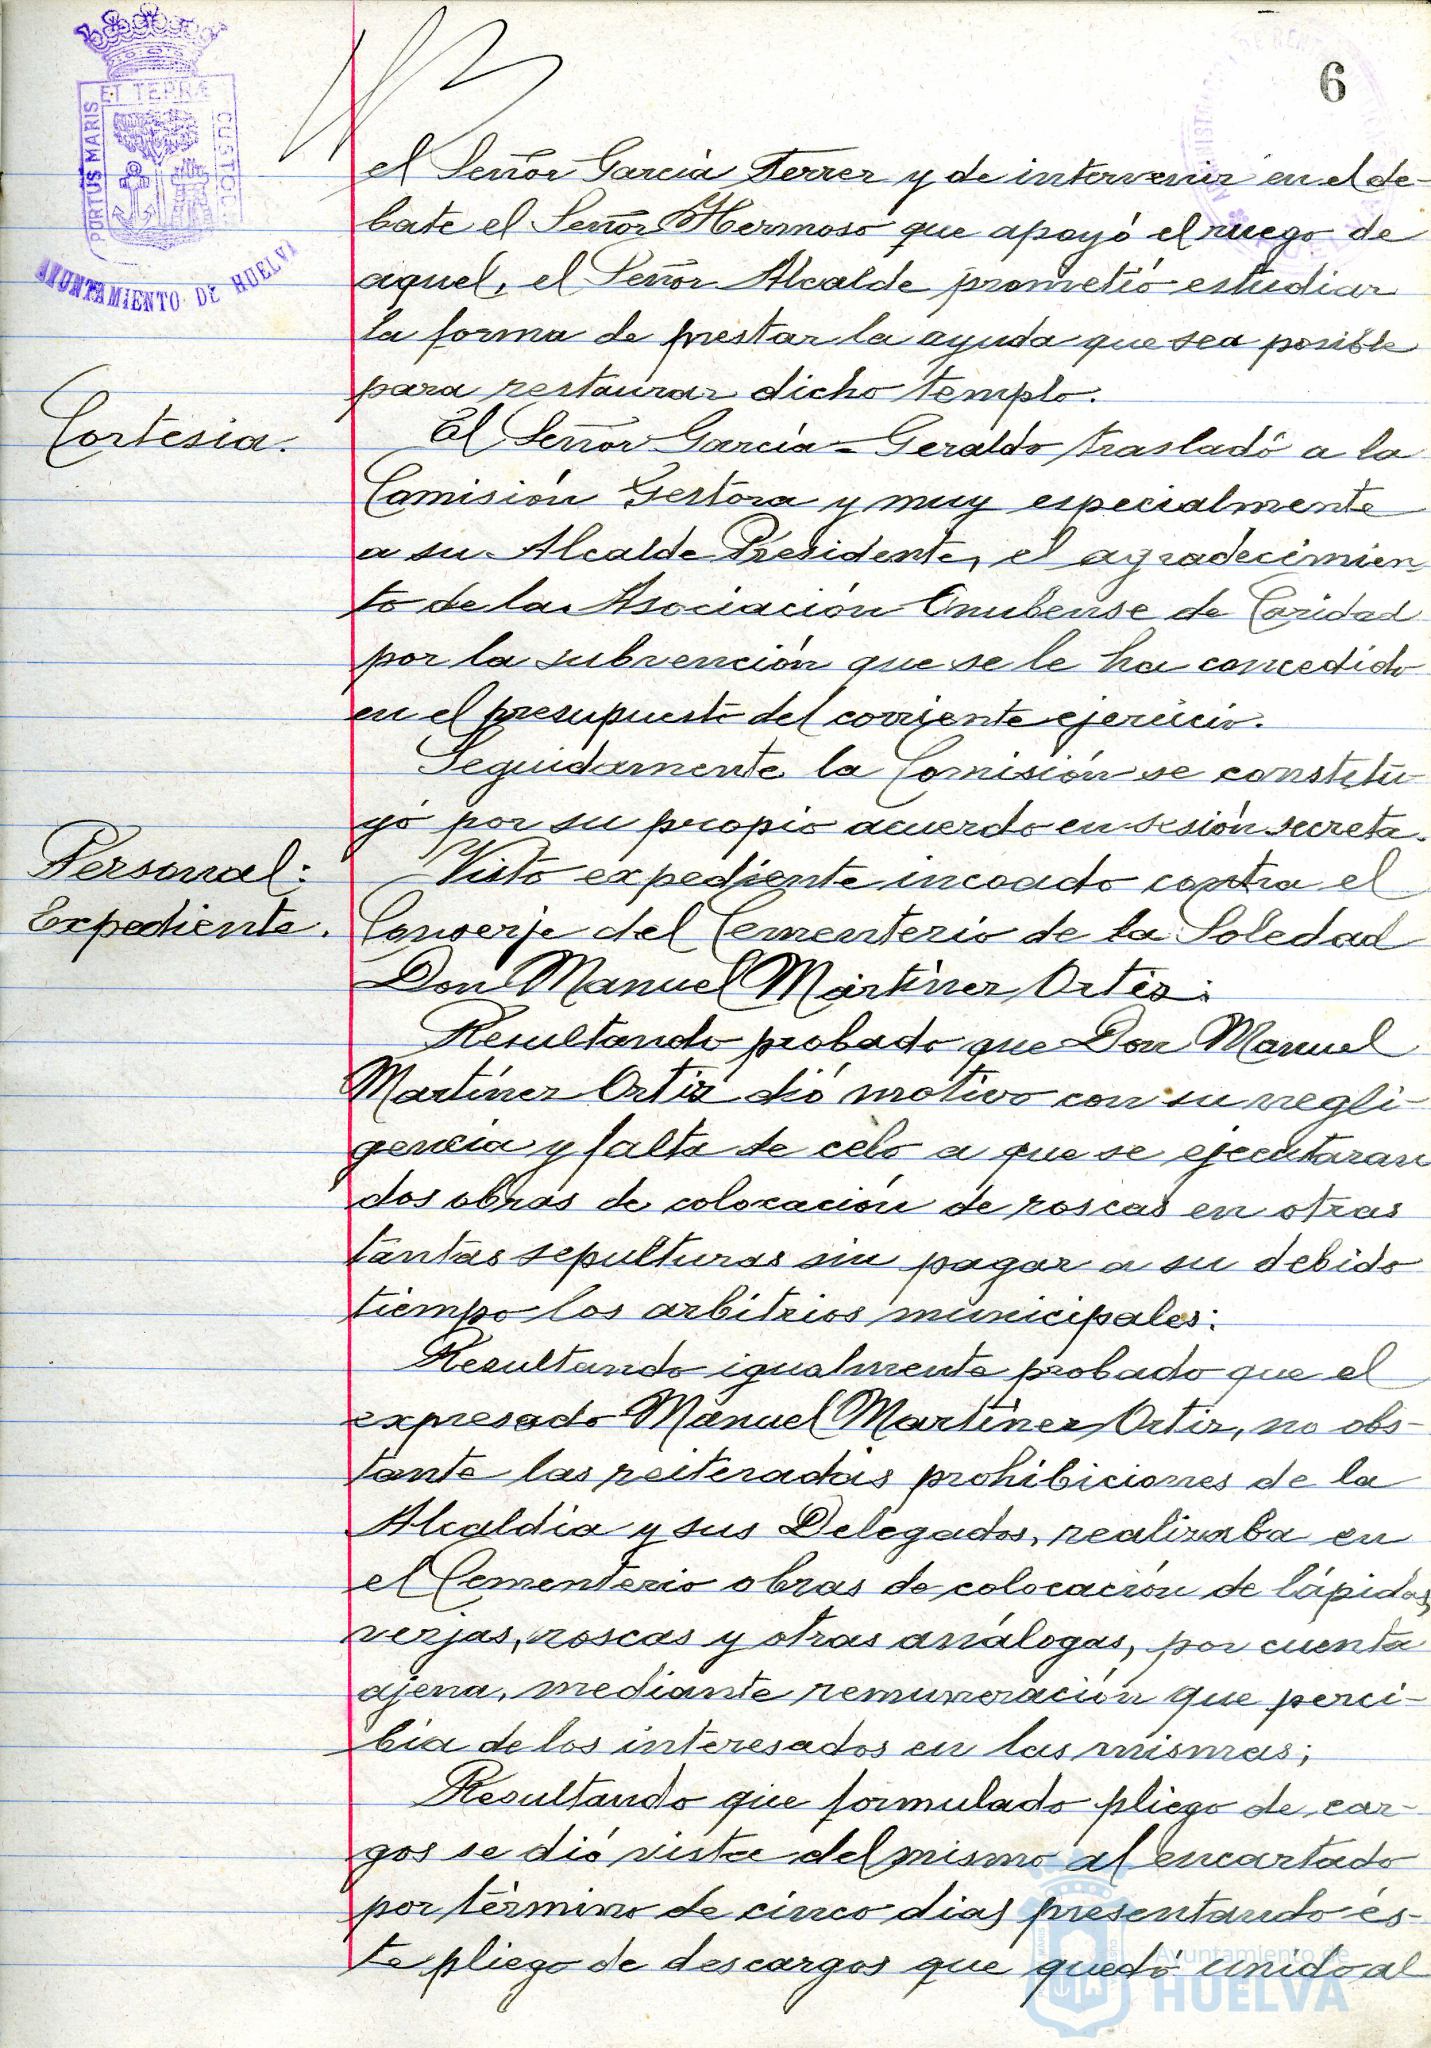 6
PORTUS MARIS
ET TERRÆ
CUSTOD.
AYUNTAMIENTO DE HUELVA
el Señor García Ferrer y de intervenir en el de-
bate el Señor Hermoso que apoyó el ruego de
aquel, el Señor Alcalde prometió estudiar
la forma de prestar la ayuda que sea posible
para restaurar dicho templo.
Cortesia.
El Señor García-Geraldo trasladó a la
Comisión Gestora y muy especialmente
a su Alcalde Presidente, el agradecimien-
to de la Asociación Onubense de Caridad
por la subvención que se le ha concedido
en el presupuesto del corriente ejercicio.
Seguidamente la Comisión se constitu-
yó por su propio acuerdo en sesión secreta.
Personal:
Expediente.
Visto expediente incoado contra el
Conserje del Cementerio de la Soledad
Don Manuel Martínez Ortiz:
Resultando probado que Don Manuel
Martínez Ortiz dió motivo con su negli-
gencia y falta de celo a que se ejecutaran
dos obras de colocación de roscas en otras
tantas sepulturas sin pagar a su debido
tiempo los arbitrios municipales:
Resultando igualmente probado que el
expresado Manuel Martínez Ortiz, no obs-
tante las reiteradas prohibiciones de la
Alcaldia y sus Delegados, realizaba en
el Cementerio obras de colocación de lápidas,
verjas, roscas y otras análogas, por cuenta
ajena, mediante remuneración que perci-
bia de los interesados en las mismas;
Resultando que formulado pliego de car-
gos se dió vista del mismo al encartado
por término de cinco dias presentando és-
te pliego de descargos que quedó unido al
Ayuntamiento de
HUELVA